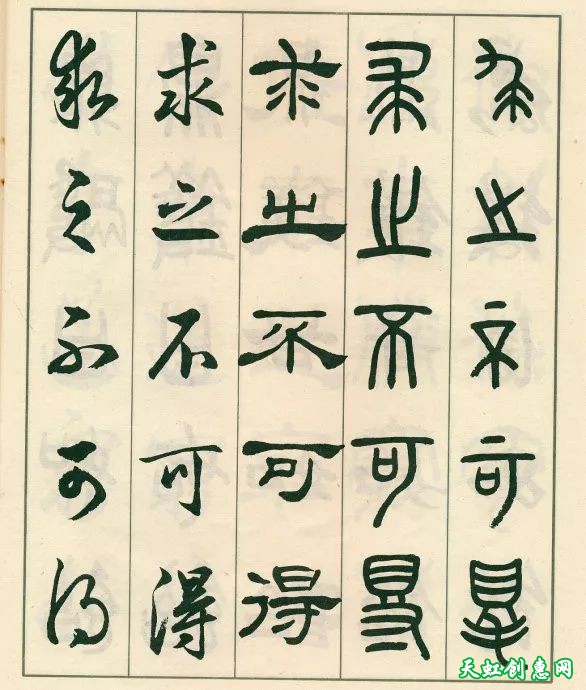 求之不可得
求之不可得
求之不可得
求之不可得
求之不可得
天虹创意网